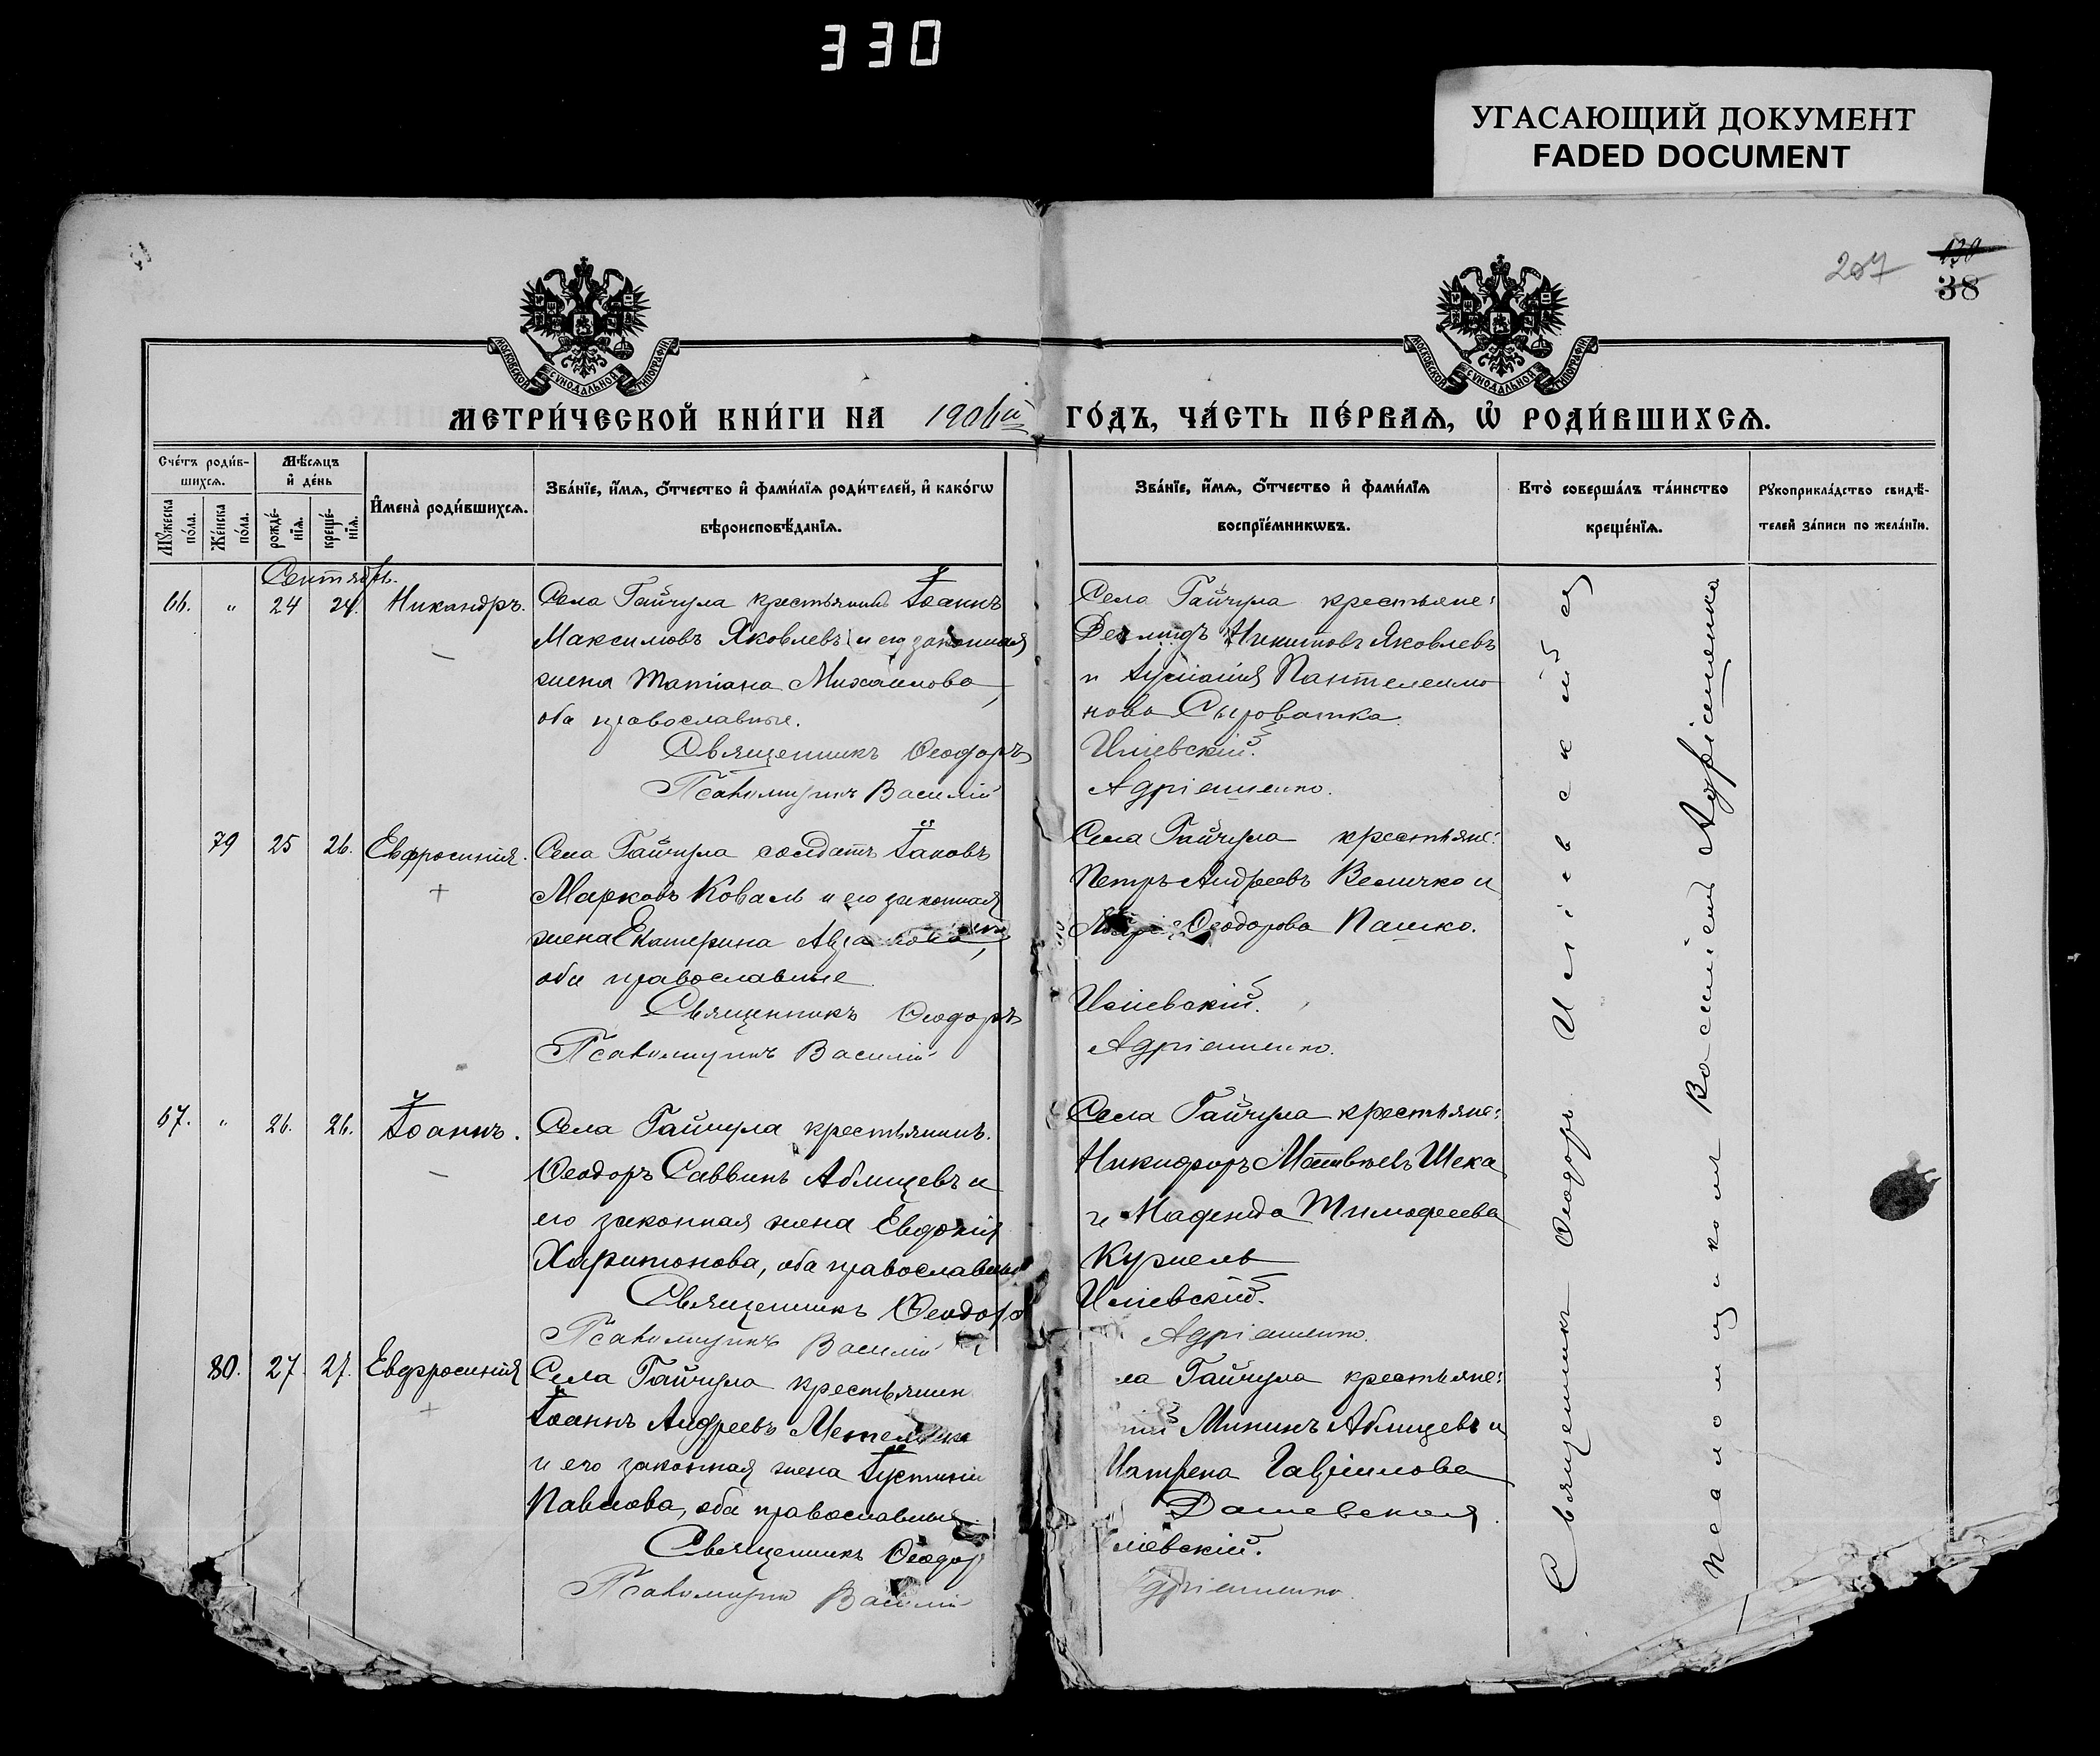 330
УГАСАЮЩИЙ ДОКУМЕНТ
FADED DOCUMENT
207
130
38
МОСКОВСКОЙ СѴНОДАЛЬНОЙ ТИПОГРАФІИ
МОСКОВСКОЙ СѴНОДАЛЬНОЙ ТИПОГРАФІИ
МЕТРИ́ЧЕСКОЙ КНИ́ГИ НА 1906й ГО́ДЪ, ЧА́СТЬ ПЕ́РВАѦ, Ѽ РОДИ́ВШИХСѦ.
Сче́тъ роди́в-
шихсѧ.
Мѣ́сѧцъ
и҆ де́нь
Мꙋ́жеска по́ла.
Же́нска по́ла.
рожде́-
нїѧ.
креще́-
нїѧ.
И҆мена̀ роди́вшихсѧ.
Зва́нїе, и҆́мѧ, ѻ҆́тчество и҆ фами́лїѧ роди́телей, и҆ како́гѡ
вѣроисповѣ́данїѧ.
Зва́нїе, и҆́мѧ, ѻ҆́тчество и҆ фами́лїѧ
воспрїе́мникѡвъ.
Кто̀ соверша́лъ та́инство
креще́нїѧ.
Рꙋкоприкла́дство свидѣ́-
телей за́писи по жела́нїю.
Сентябрь.
66. " 24 24. Никандръ.
Села Гайчула крестьянинъ Іоаннъ
Максимовъ Яковлевъ и его законная
жена Татіана Михайлова,
оба православные.
Священникъ Ѳеодоръ
Псаломщикъ Василій
Села Гайчула крестьяне:
Никитовъ Яковлевъ
и Пантелеимо
нова Сыроватка.
Иліевскій.
Адріашенко.
79 25 26. Евфросинія.
Села Гайчула солдатъ Іаковъ
Марковъ Коваль и его законная
жена Екатерина
оба православные
Священникъ Ѳеодоръ
Псаломщикъ Василій
Села Гайчула крестьяне:
Петръ Андреевъ Величко и
Ѳеодорова Пашко.
Иліевскій.
Адріашенко.
67. " 26. 26. Іоаннъ.
Села Гайчула крестьянинъ
Ѳеодоръ Саввинъ Аблицевъ и
его законная жена Евдокія
Харитонова, оба православные
Священникъ Ѳеодоръ
Псаломщикъ Василій
Села Гайчула крестьяне:
Никифоръ Матвѣевъ Шека
и Надежда Тимофеева
Кужель
Иліевскій.
Адріашенко.
80. 27. 27. Евфросинія
Села Гайчула крестьянин
Іоаннъ Андреевъ
и его законная жена Іустинія
Павлова, оба православные.
Священникъ Ѳеодор
Псаломщик Василій
ла Гайчула крестьяне:
Мининъ Аблицевъ и
Матрена Гавріилова
Дашевская.
ліевскій.
дріашенко.
Священникъ Ѳеодоръ Иліевскій съ
псаломщикомъ Василіемъ Адріашенко